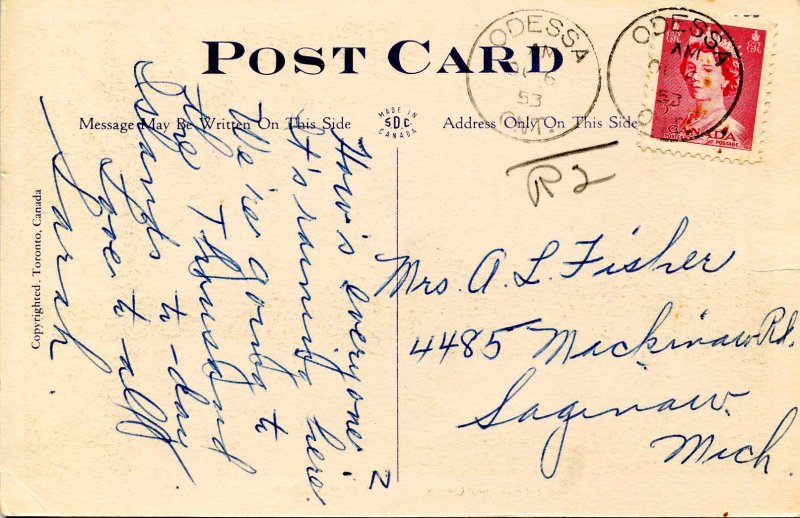 POST CARD
Message May Be Written On This Side
MADE IN
SDC
CANADA
Address Only On This Side
ODESSA
AM
6
53
ONT.
ODESSA
AM
53
CANADA
POSTAGE
R2
How's everyone?
It's raining here.
We're going to
the Thousand
Islands to-day
Love to all
Sarah.
Mrs. A. L. Fisher
4485 Mackinaw Rd.
Saginaw.
Mich.
Copyrighted. Toronto, Canada